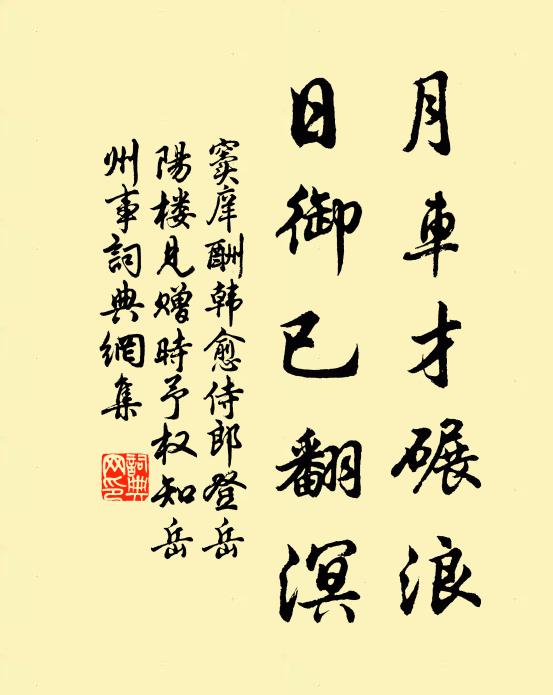 月車才碾浪
日御已翻溟
窦庠酬韩愈侍郎登岳
陽楼見赠時予权知岳
州事詞典網集
詞典网印